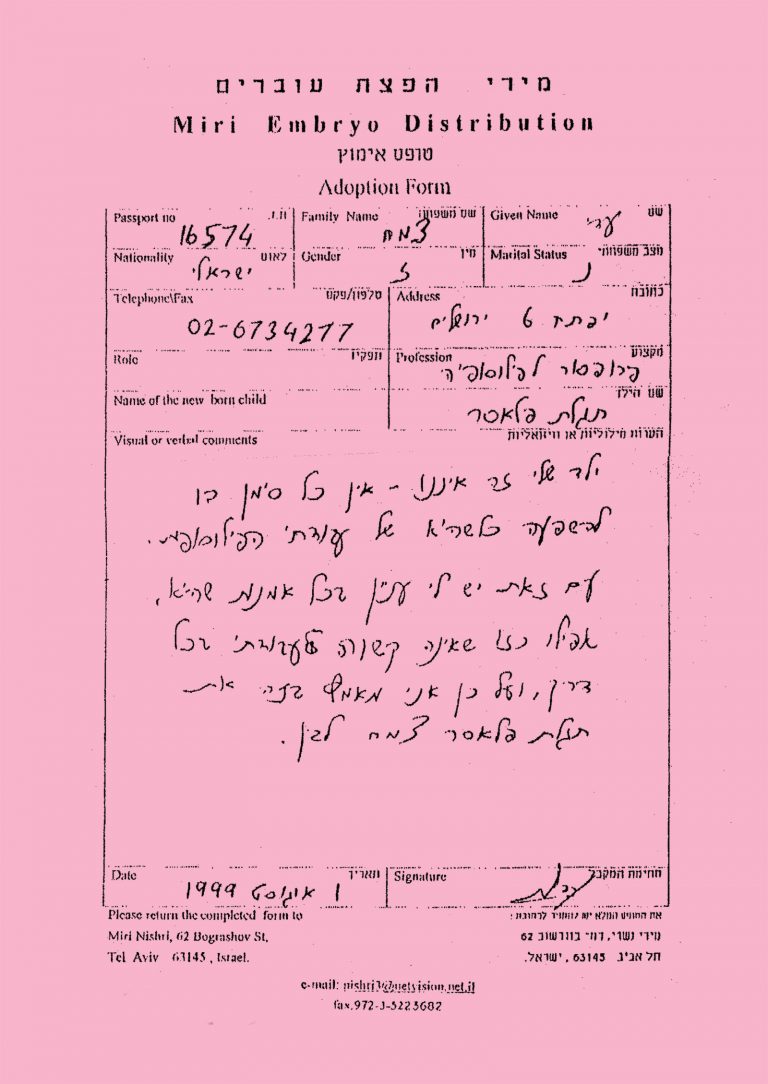 מירי הפצת עוברים
Miri Embryo Distribution
טופס אימוץ
Adoption Form
Passport no ת.ז. Family Name שם משפחה Given Name שם
16574 צמח עדי
Nationality לאום Gender מין Marital Status מצב משפחתי
ישראלי ז נ
Telephone\Fax טלפון/פקס Address כתובת
02-6734277 יפתח 6 ירושלים
Role תפקיד Profession מקצוע
פרופסור לפילוסופיה
Name of the new born child שם הילד
תגלת פלאסר
Visual or verbal comments הערות מילוליות או וויזואליות
ילד שלי זה איננו - אין כל סימן בו
להשפעה כלשהיא של עבודתי הפילוסופית.
עם זאת יש לי ענין בכל אמנות שהיא,
אפילו כזו שאינה קשורה לעבודתי בכל
דרך, ועל כן אני מאמץ בזה את
תגלת פלאסר צמח לבן.
Date תאריך Signature חתימת המקבל
1 אוגוסט 1999
Please return the completed form to את הטופס המלא יש להחזיר לכתובת:
Miri Nishri, 62 Bograshov St, מירי נשרי, רח' בוגרשוב 62
Tel Aviv 63145, Israel. תל אביב 63145, ישראל.
e-mail: nishri3@netvision.net.il
fax.972-3-5223682